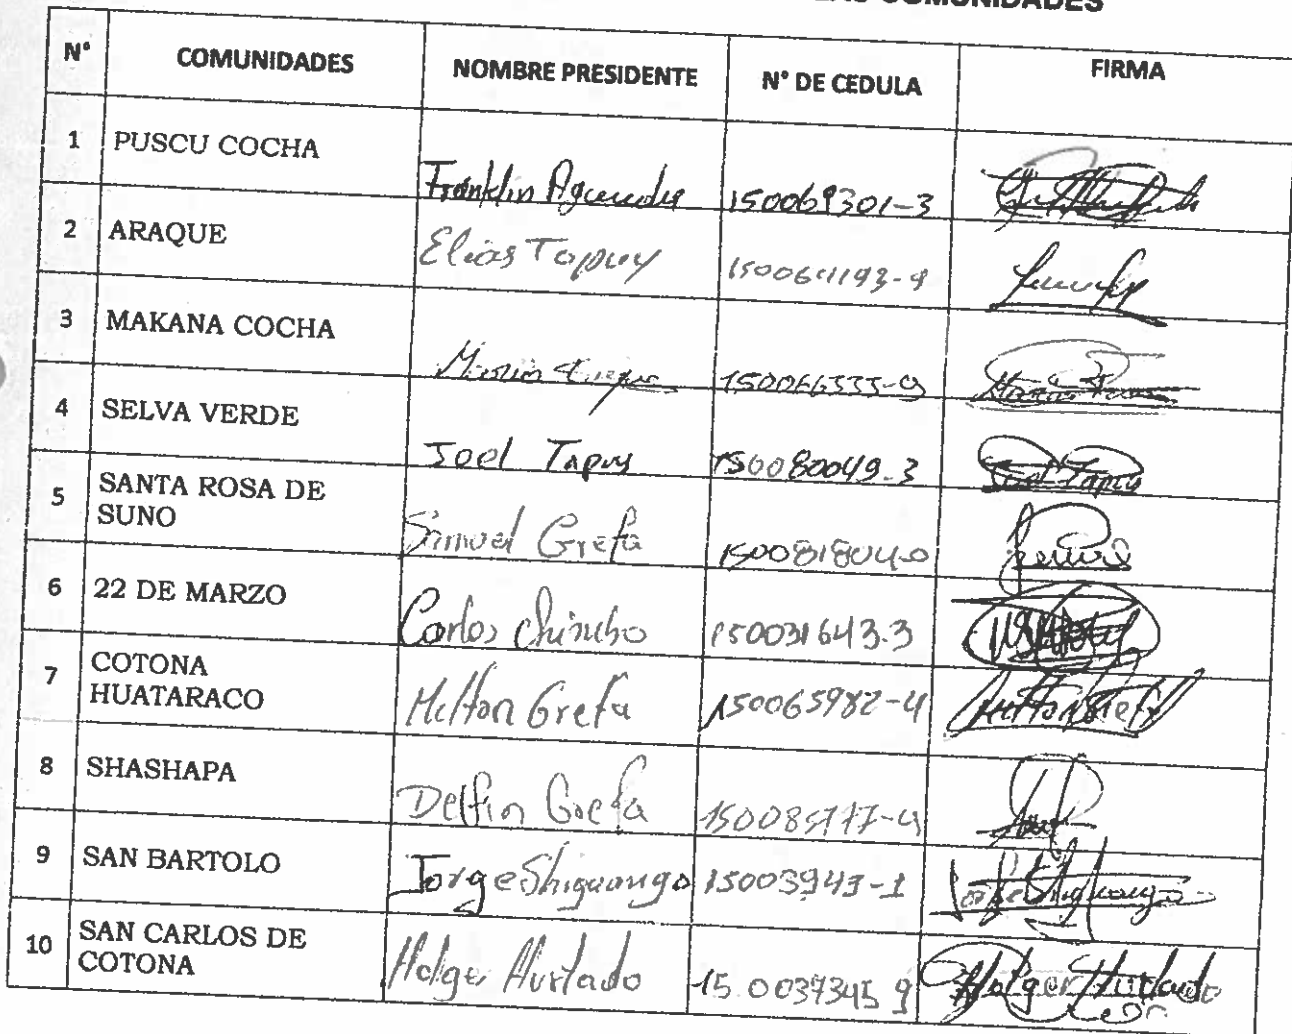 COMUNIDADES
N° COMUNIDADES NOMBRE PRESIDENTE N° DE CEDULA FIRMA
1 PUSCU COCHA Franklin 150069301-3
2 ARAQUE Elias Tapuy
3 MAKANA COCHA
4 SELVA VERDE Joel Tapuy 150080049.3 Joel Tapuy
5 SANTA ROSA DE SUNO Samuel Grefa 150081804-0
6 22 DE MARZO Carlos Chimbo 150031643.3
7 COTONA HUATARACO Milton Grefa 150065982-4 Milton Grefa
8 SHASHAPA Delfin Grefa
9 SAN BARTOLO Jorge Shiguango 15003943-1 Jorge Shiguango
10 SAN CARLOS DE COTONA Holger Hurtado 15.0037345 9 Holger Hurtado